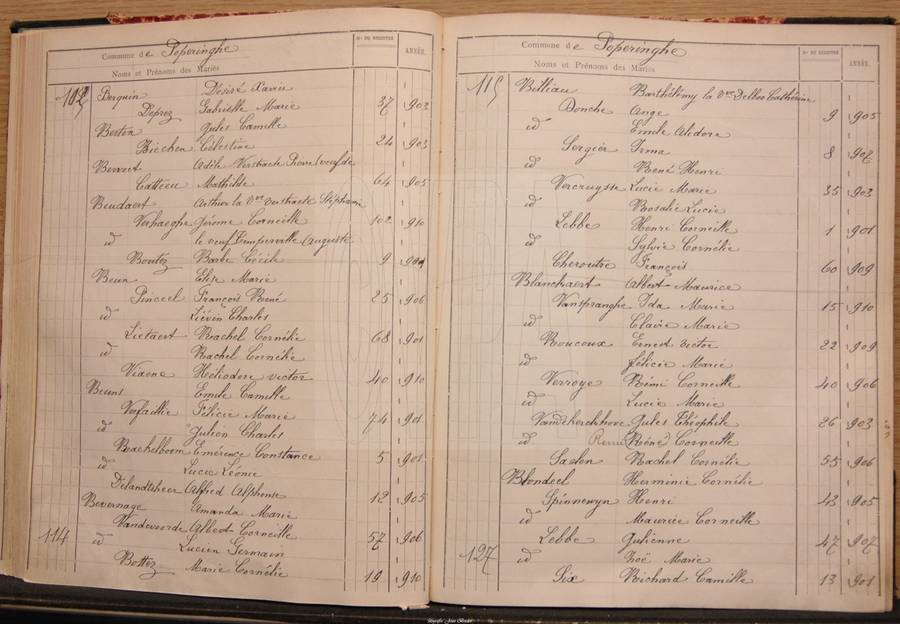 Commune de Poperinghe
Noms et Prénoms des Mariés
No DU REGISTRE
ANNÉE.
Berquin Désiré Xavier
Deprez Gabrielle Marie 37 903
Jules Camille
Célestine 24 903
Adèle Verstraete Pierre (veuf de
Catteeu Mathilde 64 905
Beudaert Arthur la Vve Verstraete Stéphanie
Verhaeghe Jérome Corneille 102 910
id le veuf Temperville (Auguste
Boutez Barbe Cécile 9 901
Beun Elise Marie
Pinceel François René 25 906
id Liévin Charles
Lietaert Rachel Cornélie 68 901
id Rachel Cornélie
Héliodore Victor 40 910
Beuns Emile Camille
Verfaillie Félicie Marie 74 901
id Julien Charles
Bachelboom Emérence Constance 5 901
id Lucie Léonie
Délandtsheer Alfred Alphonse 12 905
Bevernage Amanda Marie
Vandevoorde Albert Corneille 57 906
114 id Lucien Germain
Bottez Marie Cornélie 19 910
Commune de Poperinghe
Noms et Prénoms des Mariés
No DU REGISTRE
ANNÉE.
115 Billiau Barthélémy la Vve Delbos Cathérine
Donche Ange 9 905
id Emile Alidore
Sergier Irma 8 902
id René Henri
Vercruysse Lucie Marie 35 903
id Rosalie Lucie
Lebbe Henri Corneille 1 901
id Sylvie Cornélie
Cheroutre François 60 909
Blanckaert Albert-Maurice
Vanspranghe Ida Marie 15 910
id Claire Marie
Roucoux Ernest Victor 22 909
id Félicie Marie
Verroye Rémi Corneille 40 906
id Lucie Marie
Vandekerckhove Jules Théophile 26 903
id Réné Corneille
Saelen Rachel Cornélie 55 906
Blondeel Herminie Cornélie
Spinnewyn Henri 42 905
id Maurice Corneille
Lebbe Julienne 47 907
127 id Zoë Marie
Six Richard Camille 13 901